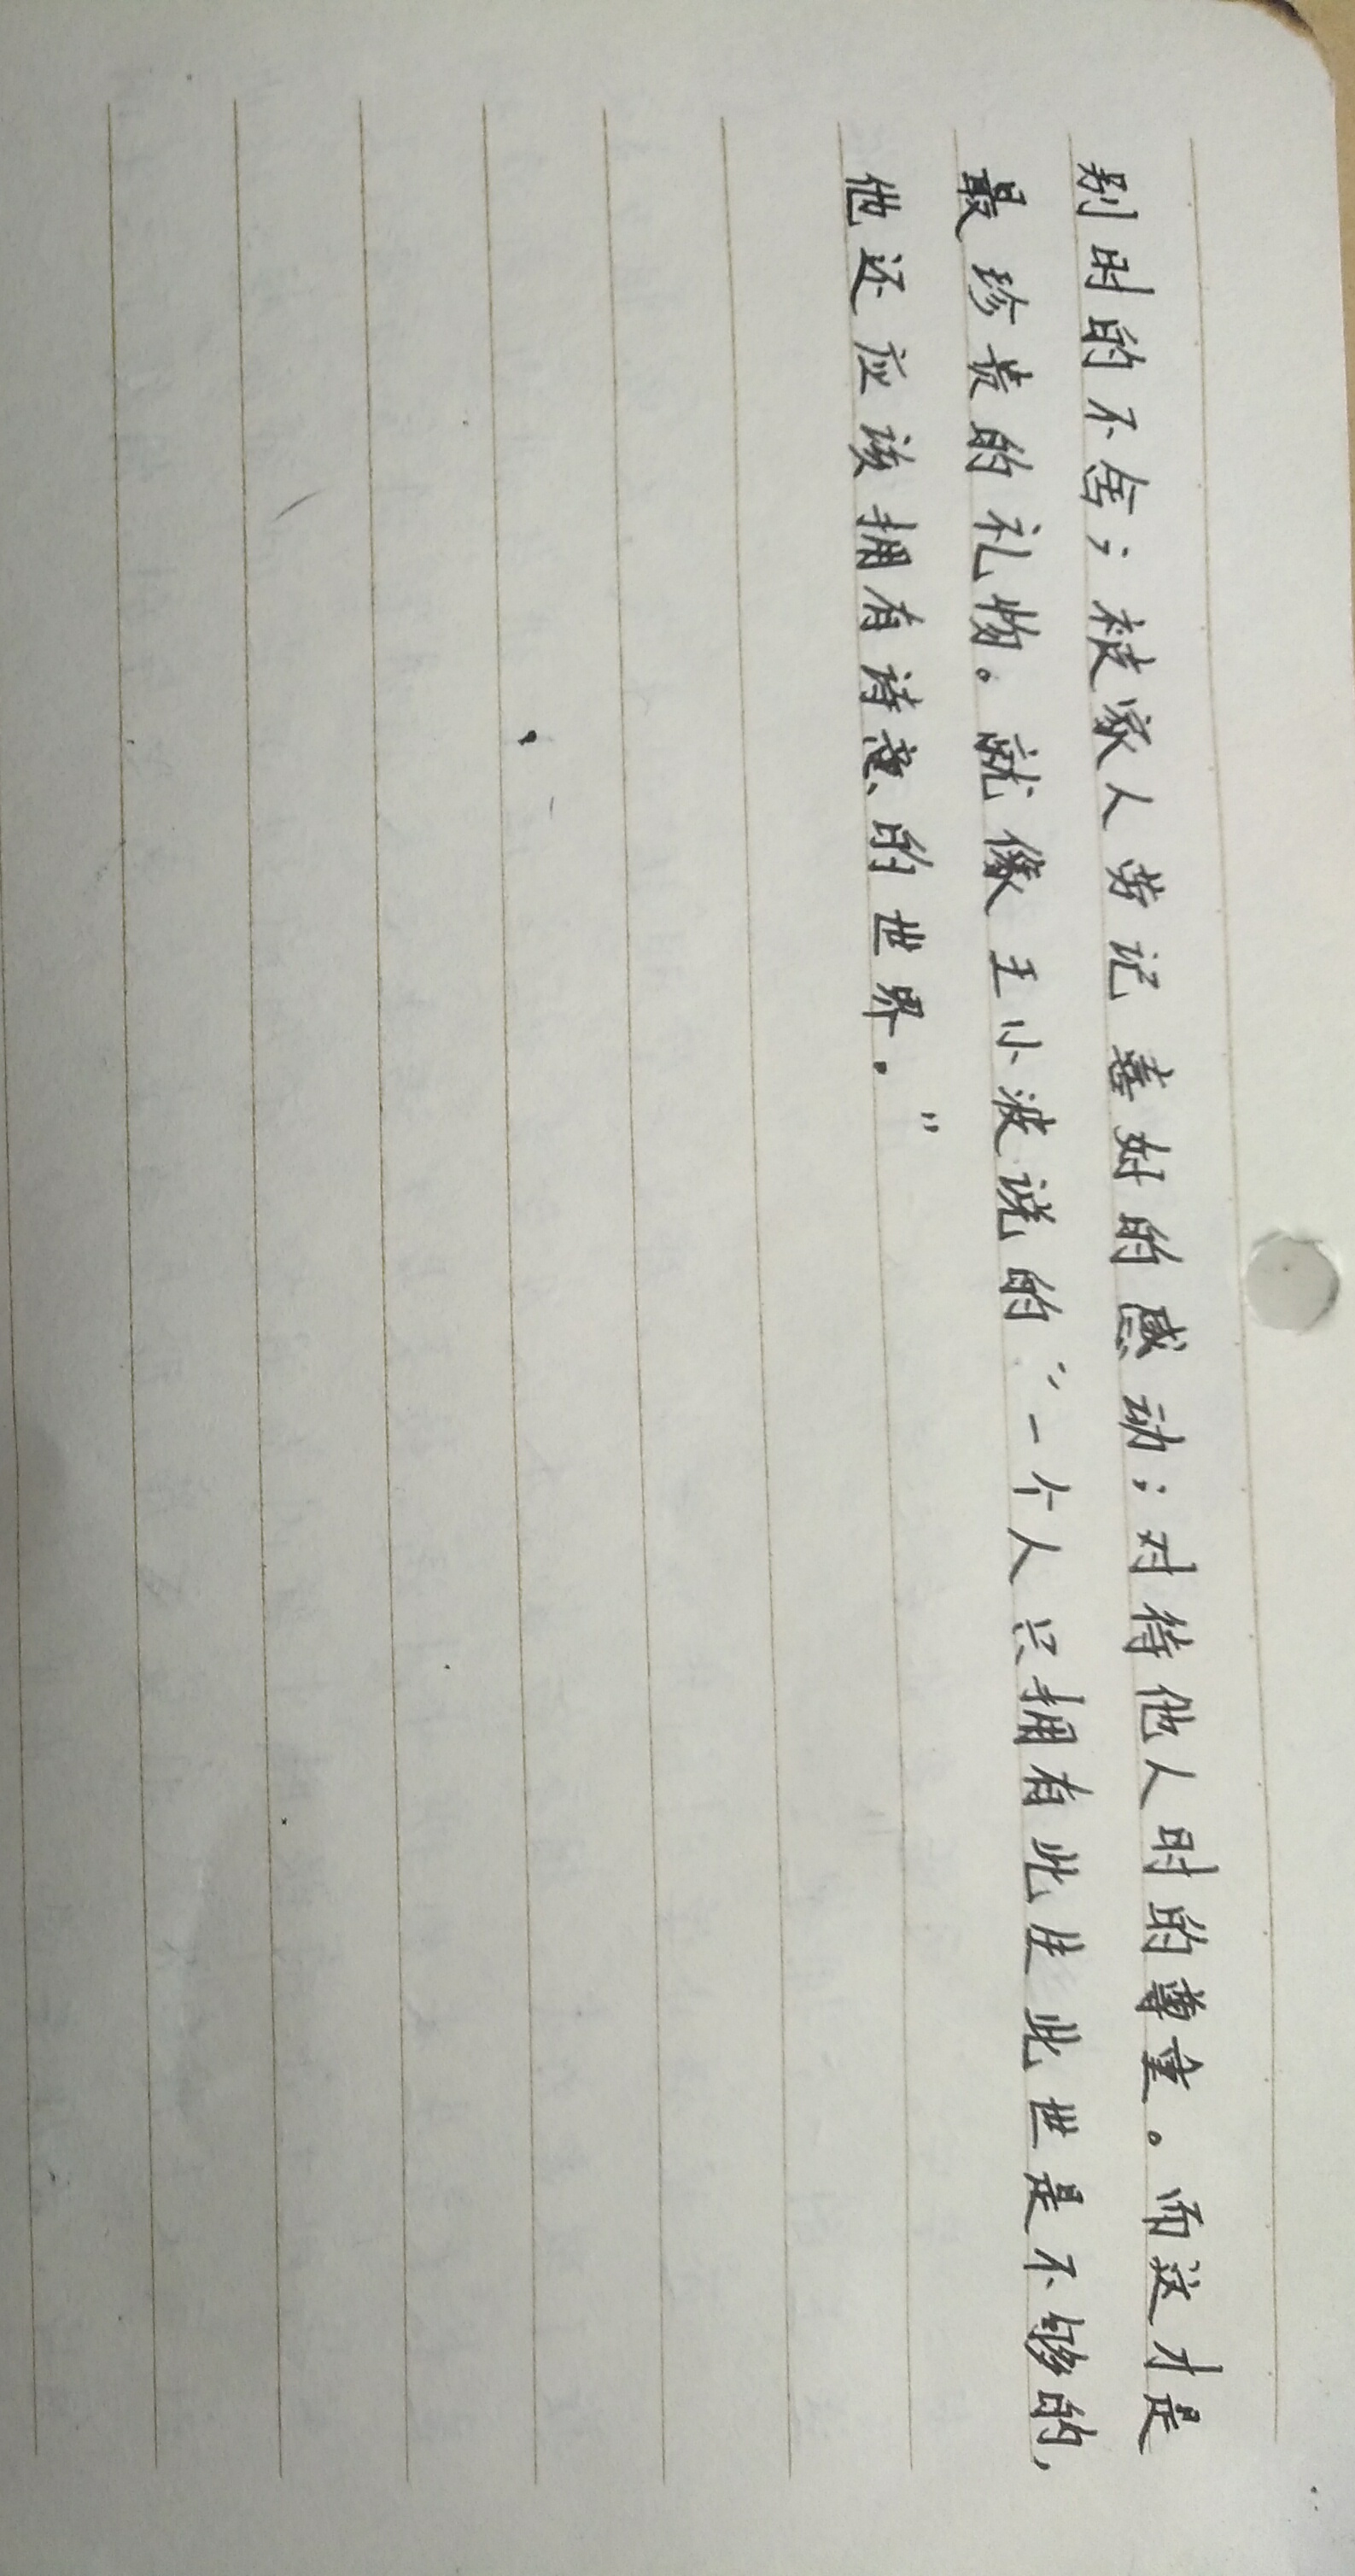 别时的不舍；被家人劳记喜好的感动；对待他人时的尊重。而这才是
最珍贵的礼物。就像王小波说的“一个人只拥有此生此世是不够的，
他还应该拥有诗意的世界。”